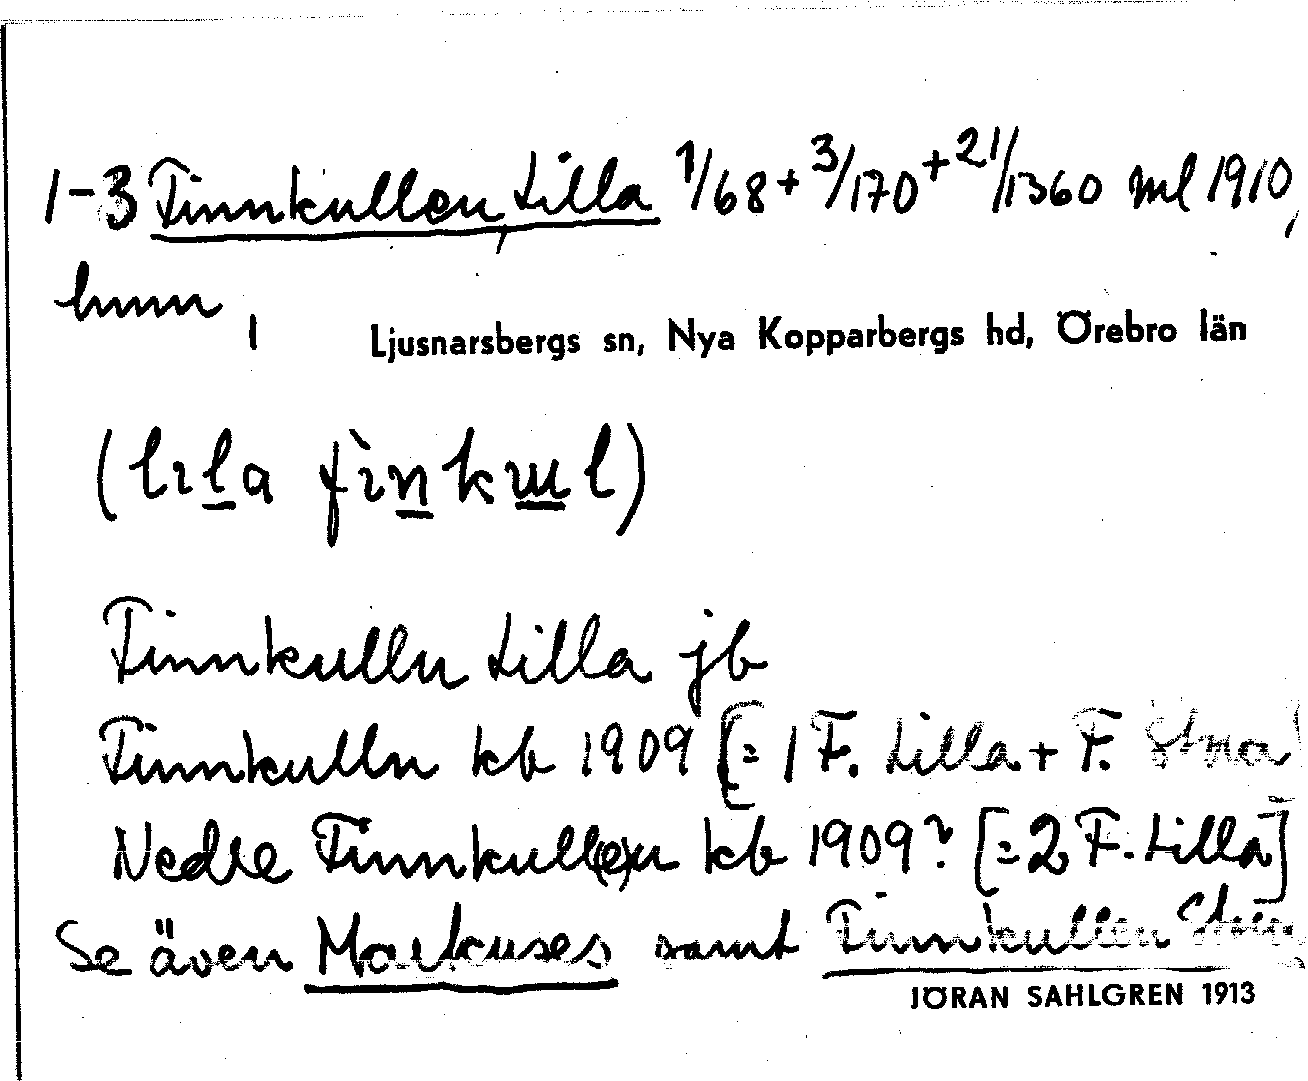 1-3 Finnkullen, Lilla 1/68 + 3/170 + 21/1360 ml 1910,
hmn,
Ljusnarsbergs sn, Nya Kopparbergs hd, Örebro län
(lıla fìnkɯl)
Finnkulln Lilla jb
Finnkulln kb 1909 [= 1 F. Lilla + F. Stora]
Nedre Finnkull(e)n kb 1909? [= 2 F. Lilla]
Se även Markuses samt Finnkullen Stora
JÖRAN SAHLGREN 1913